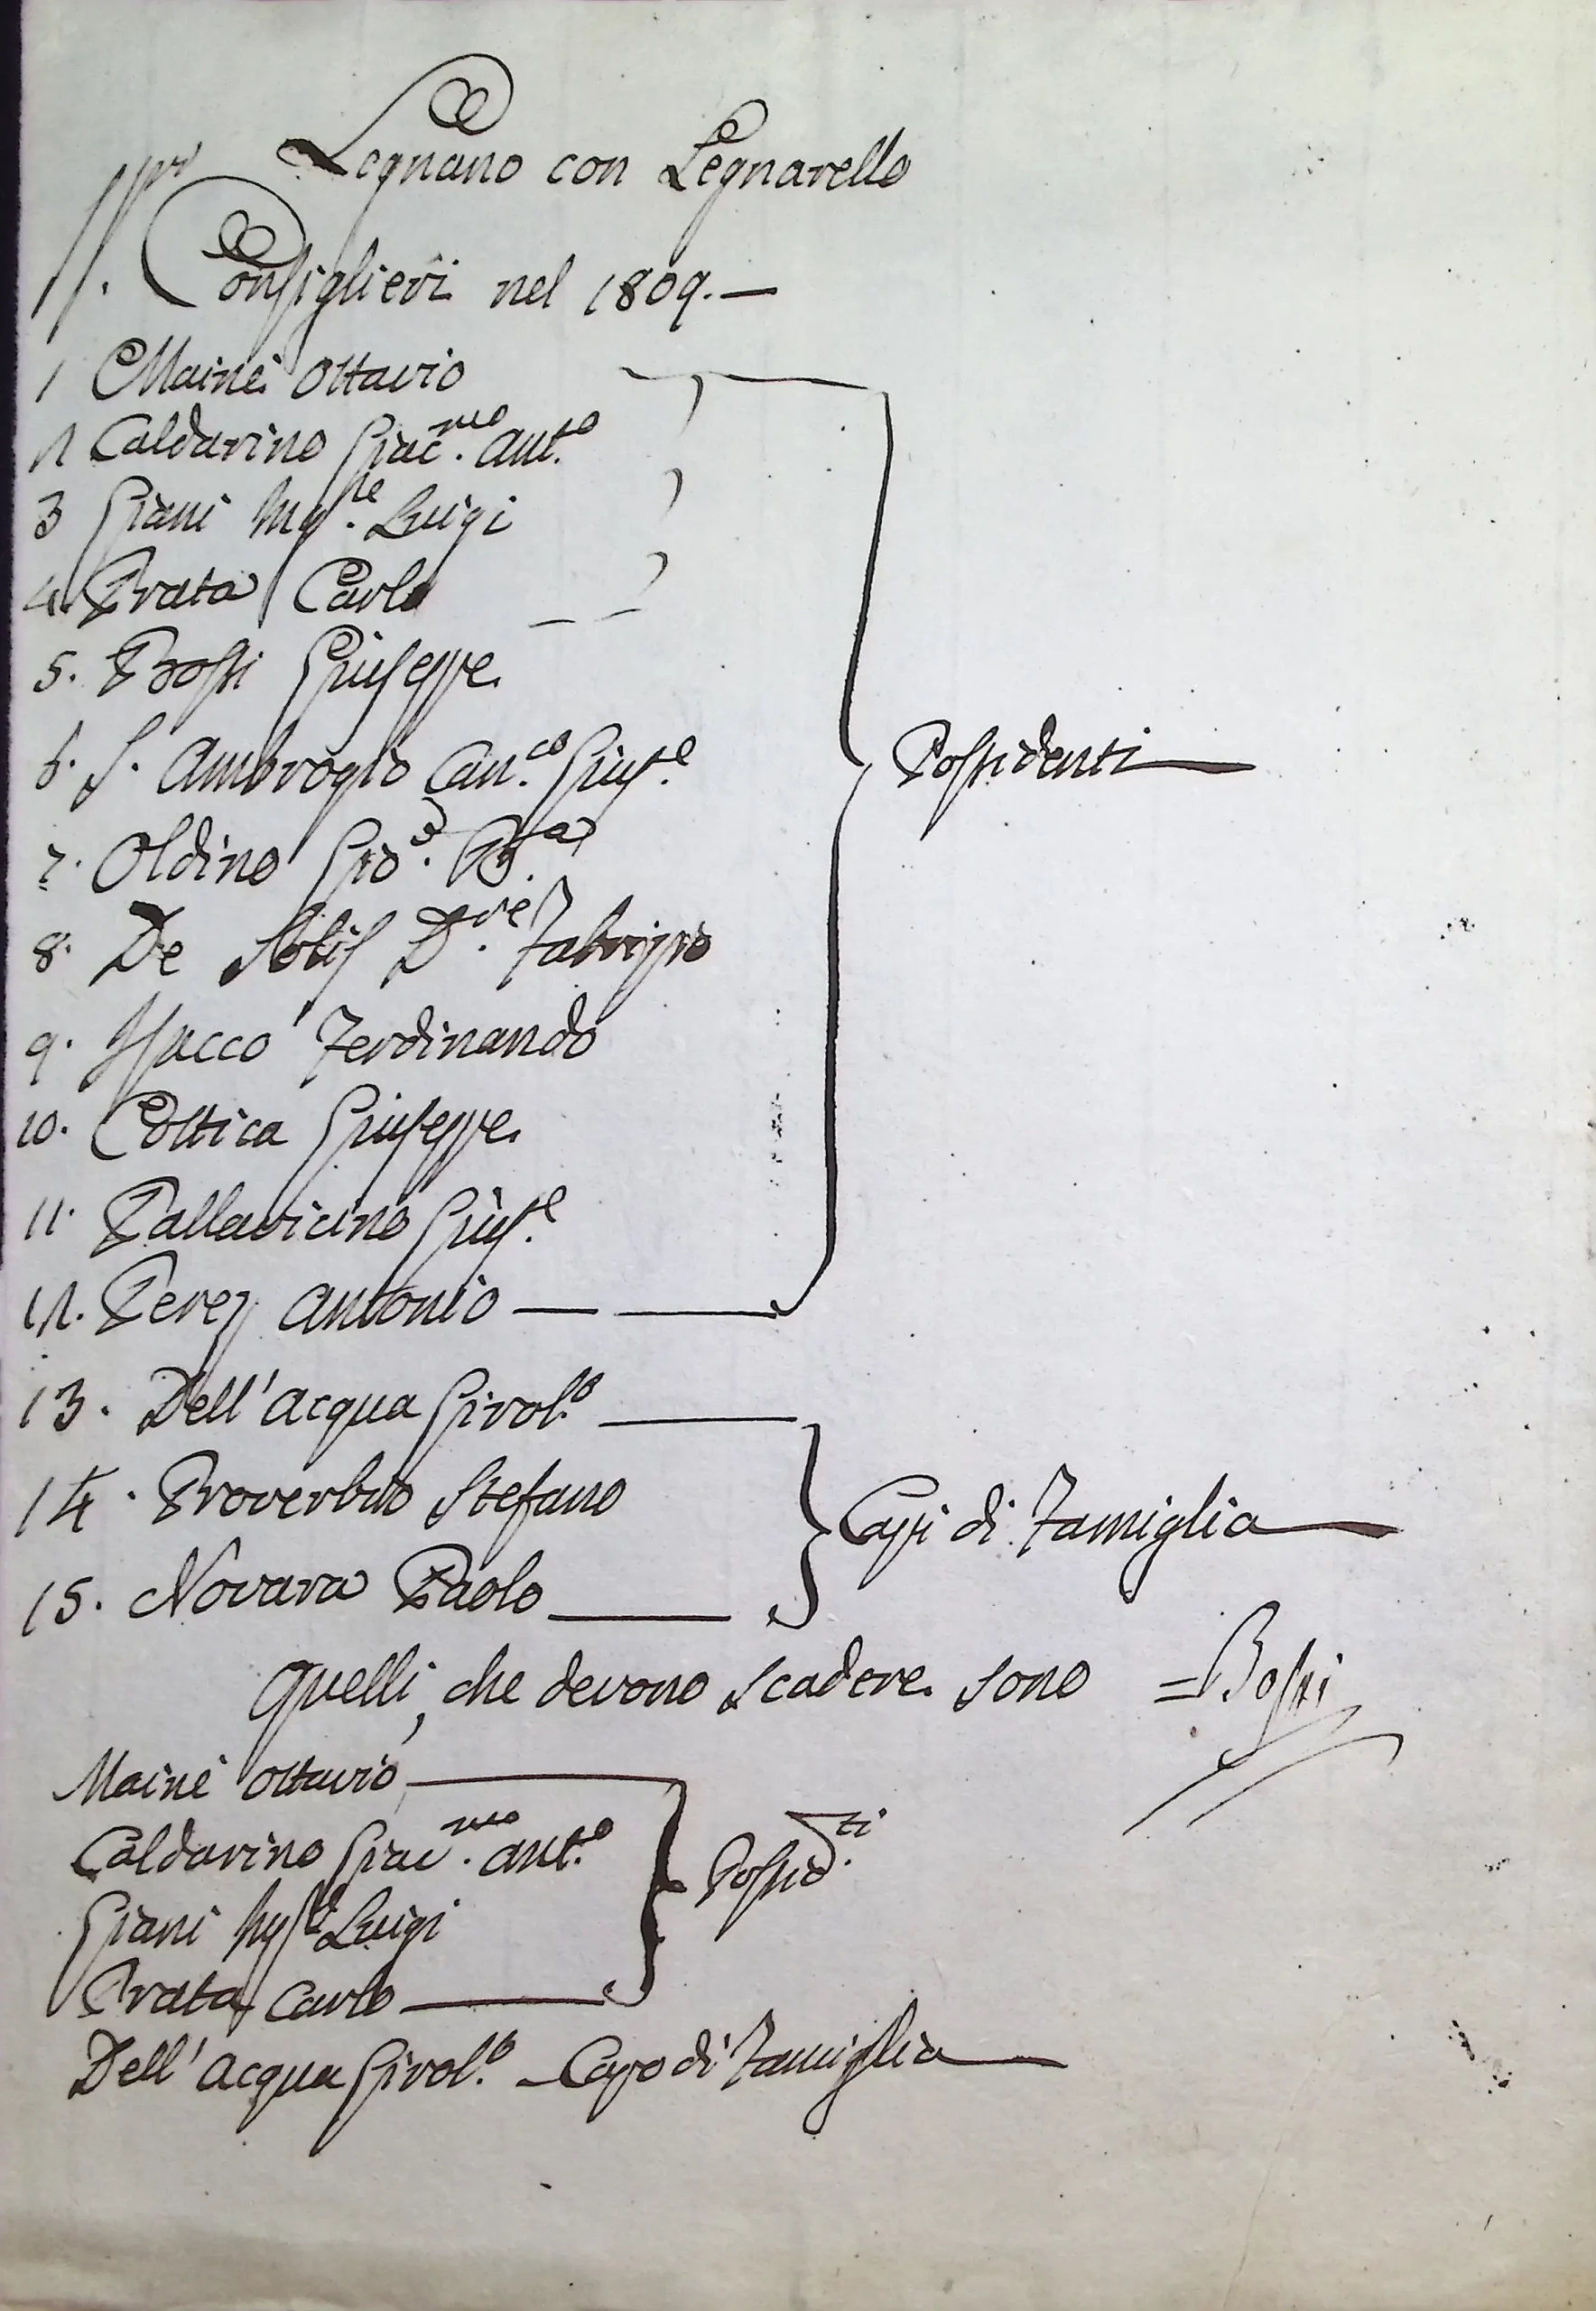 Legnano con Legnarello
Consiglieri nel 1809.—
1 Maine Ottavio
2 Caldarino Giac.mo Ant.o
3 Giani Luigi
4. Prata Carlo
5. Bossi Giuseppe
6. S. Ambrogio Can.co Gius.e
7. Oldino Gio. B.ta
8. De Solis D.re Fabrizio
9. Ferdinando
10. Cottica Giuseppe
11. Pallavicino Gius.e
12. Perez Antonio —
Possidenti
13. Dell'Acqua Girol.o
14. Proverbio Stefano
15. Novara Paolo
Capi di Famiglia
Quelli, che devono scadere sono = Bossi
Maine Ottavio
Caldarino Giac.mo Ant.o
Giani Luigi
Prata Carlo
Possid.ti
Dell'Acqua Girol.o — Capo di Famiglia